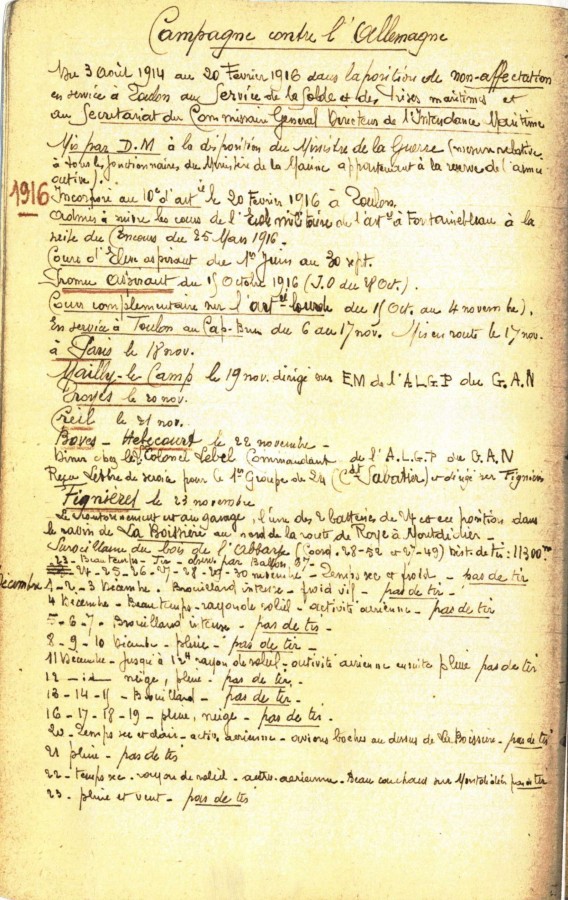 Campagne contre l'Allemagne
Du 3 Août 1914 au 20 Février 1916 dans la position de non-affectation
en service à Toulon au Service de la Solde et des Prises maritimes et
au Secrétariat du Commissaire Général Directeur de l'Intendance Maritime
Mis par D.M à la disposition du Ministre de la Guerre (mesure relative
à tous les fonctionnaires du Ministère de la Marine appartenant à la réserve de l'armée
active).
1916
Incorporé au 10e d'artie le 20 Février 1916 à Toulon.
Admis à suivre les cours de l'Ecole militaire de l'artie à Fontainebleau à la
suite du Concours du 25 Mars 1916.
Cours d'Elève aspirant du 1er Juin au 30 sept.
Promu Aspirant du 15 Octobre 1916 (J.O du 28 Oct.)
Cours complémentaire sur l'artie lourde du 15 Oct. au 4 novembre).
En service à Toulon au Cap-Brun du 6 au 17 nov. Mis en route le 17 nov.
à Paris le 18 nov.
Mailly-le Camp le 19 nov. dirigé sur EM de l'A.L.G.P du G.A.N
Troyes le 20 nov.
Creil le 21 nov.
Boves - Hébécourt le 22 novembre -
Diner chez le Colonel Lebel Commandant de l'A.L.G.P du G.A.N
Reçu Lettre de service pour le 1er Groupe de 24 (Cdt Sabatier) et dirigé sur Fignières
Fignières le 23 novembre
Le cantonnement est au garage, l'une des 2 batteries de 24 est en position dans
le ravin de La Boissière au nord de la route de Roye à Montdidier -
Surveillance du bois de l'Abbaye (Coord. 28-52 et 27-49) Dist. de tir : 11300m
23 - Beau temps - Tir - observ. par Ballon 27
24 - 25 - 26 - 27 - 28 - 29 - 30 novembre - Temps sec et froid - pas de tir
Décembre 1 - 2 - 3 Décembre. Brouillard intense - froid vif - pas de tir -
4 Décembre - Beau temps - rayon de soleil - activité aérienne - pas de tir
5 - 6 - 7 - Brouillard intense - pas de tir -
8 - 9 - 10 Décembre - pluie - pas de tir -
11 Décembre - Jusqu'à 12h rayon de soleil - activité aérienne ensuite pluie pas de tir
12 - id neige, pluie - pas de tir.
13 - 14 - 15 - Brouillard - pas de tir -
16 - 17 - 18 - 19 - pluie, neige - pas de tir
20 - Temps sec et clair - activ. aérienne - avions boches au dessus de La Boissière - pas de tir
21 pluie - pas de tir
22 - temps sec - rayon de soleil - activ. aérienne - Beau couchant sur Montdidier pas de tir
23 - pluie et vent - pas de tir